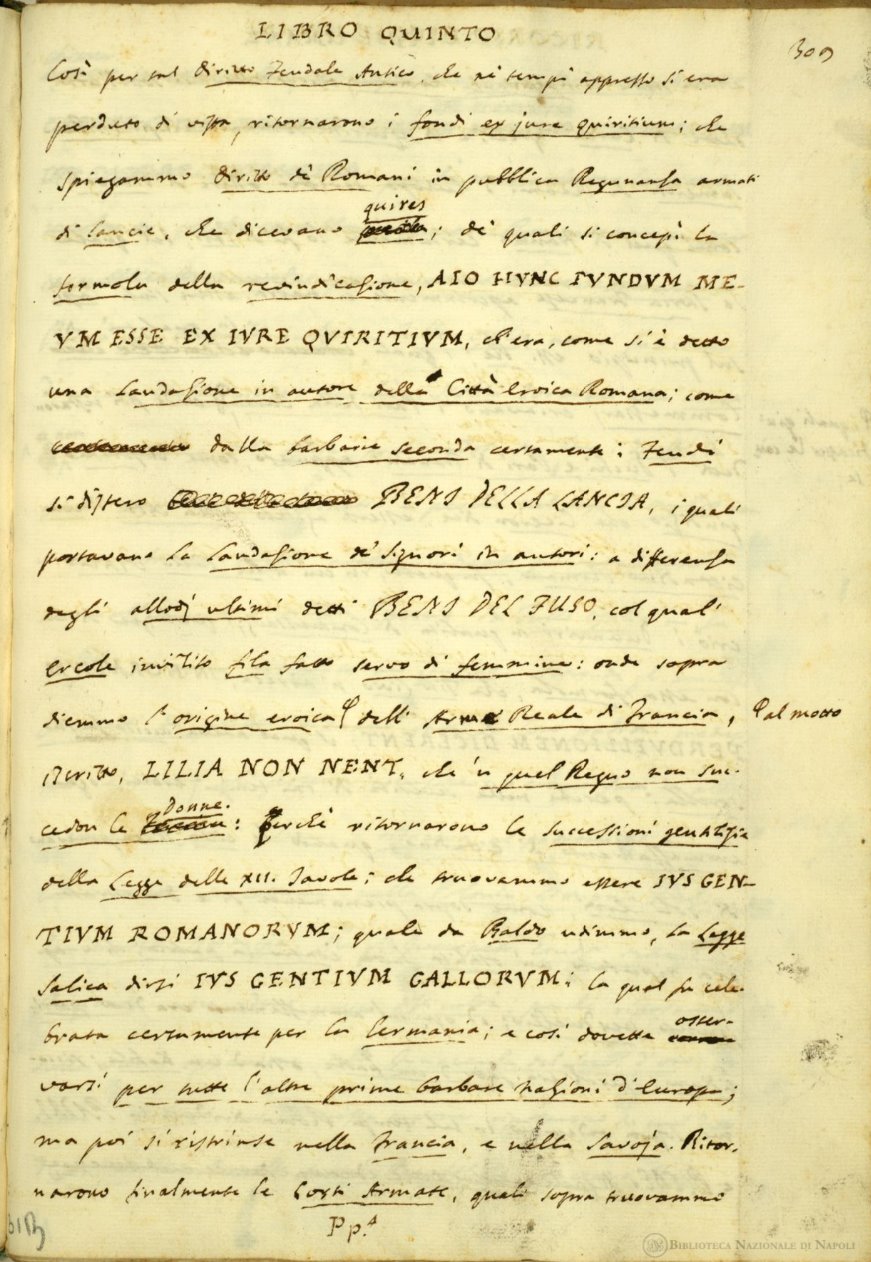 LIBRO QUINTO
309
Così per tal diritto Feudale Antico, che ne' tempi appresso si era
perduto di vista, ritornarono i fondi ex jure quiritium; che
spiegammo diritto de' Romani in pubblica Ragunanza armati
quires
di lancie, che dicevano ; de' quali si concepì la
formola della revindicazione, AIO HVNC FVNDVM ME-
VM ESSE EX IVRE QVIRITIVM, ch'era, come si è detto
una laudazione in autore della Città Eroica Romana; come
dalla barbarie seconda certamente i Feudi
si dissero BENI DELLA LANCIA, i quali
portavano la laudazione de' Signori in autori: a differenza
degli allodj ultimi detti BENI DEL FUSO, col qual'
Ercole invilito fila fatto servo di femmine: onde sopra
diemmo l'origine eroica dell' Arme Reale di Francia,
al motto
iscritto, LILIA NON NENT, che 'n quel Regno non suc-
Donne.
cedon le : Perchè ritornarono le successioni gentilizie
della Legge delle XII. Tavole; che truovammo essere IVS GEN-
TIVM ROMANORVM; quale da Baldo udimmo, la Legge
Salica dirsi IVS GENTIVM GALLORVM; la qual fu cele-
brata certamente per la Germania; e così dovette
osser-
varsi per tutte l'altre prime barbare nazioni d'Europa;
ma poi si ristrinse nella Francia, e nella Savoja. Ritor-
narono finalmente le Corti Armate, quali sopra truovammo
Pp.
BIBLIOTECA NAZIONALE DI NAPOLI